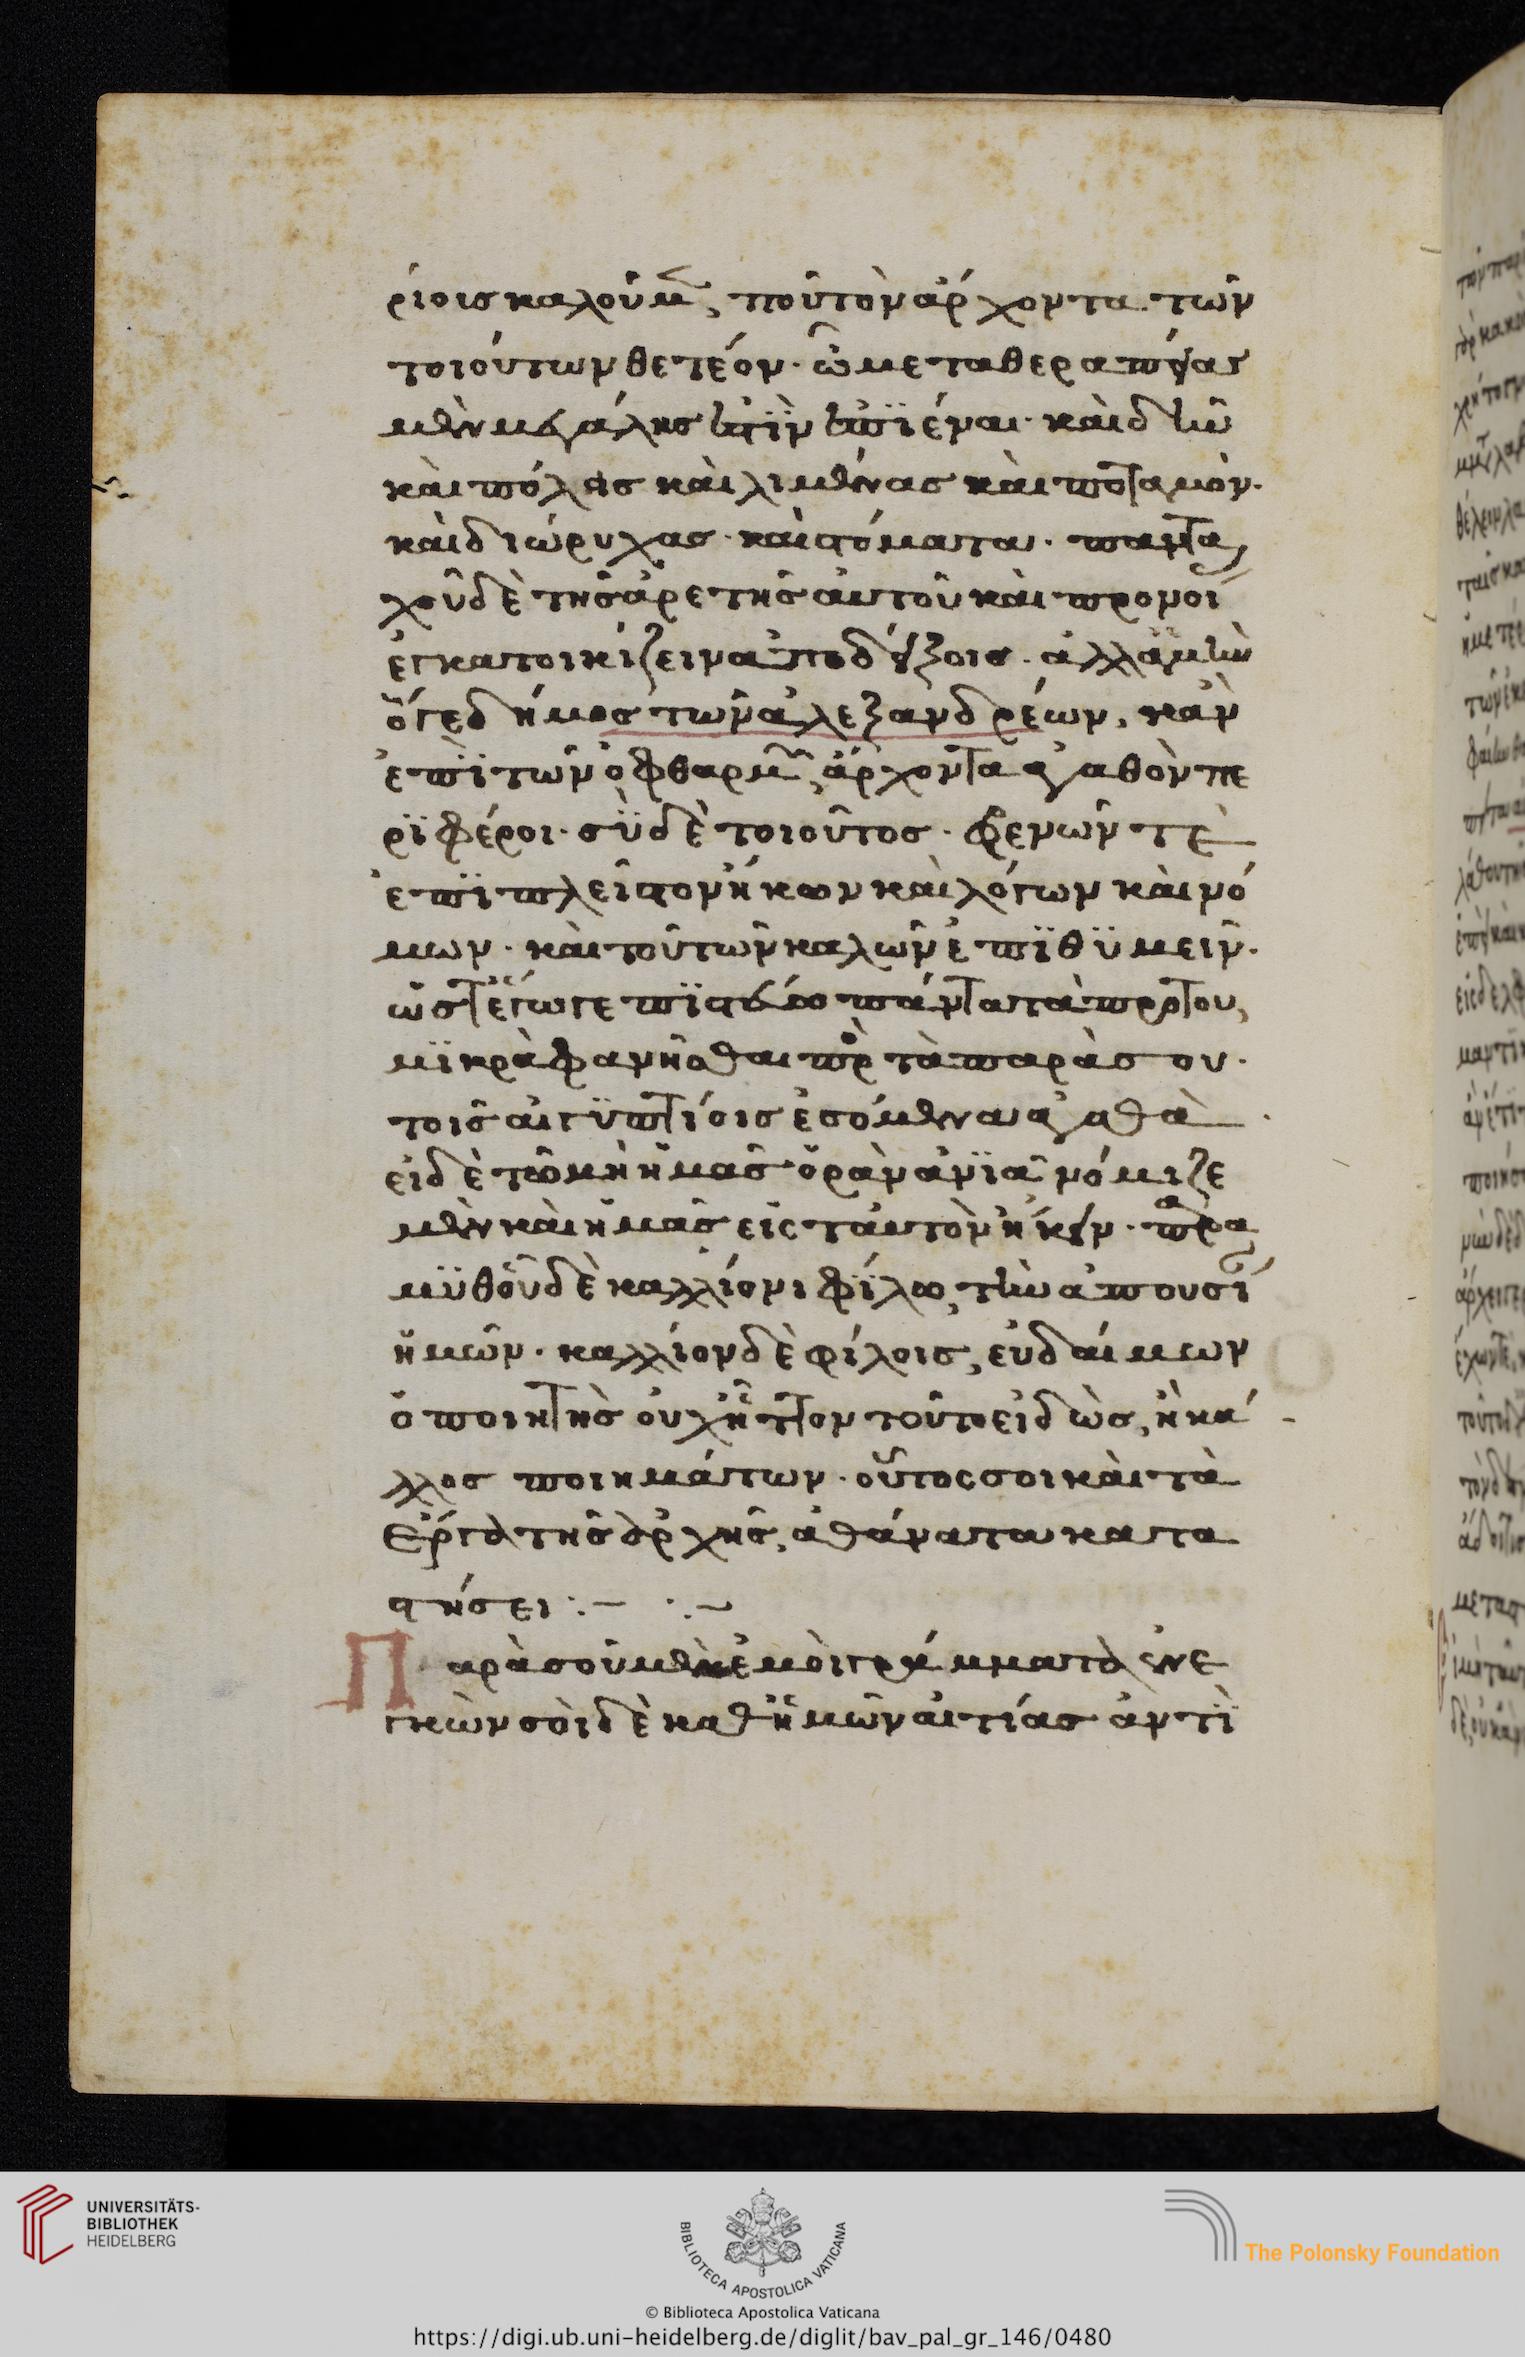 ρίοις καλούμ ποῦ τὸν ἄρχοντα τῶν
τοιούτων θετέον· ᾧ μετὰ θεραπείας
μὲν μεγάλης ἐστὶν ἐπϊέναι· καὶ δὴ
καὶ πόλεις καὶ λιμένας καὶ ποταμὸν·
καὶ διώρυχας· καὶ στόματα· πανταχοῦ
δὲ τῆς ἀρετῆς αὐτοῦ καὶ προνοί
ἐγκατοικίζειν ἀποδείξεις· ἀλλὰ μὴν
ὅγε δήμος τῶν ἀλεξανδρέων, κἀν
ἐπὶ τῶν ὀφθαρμ ἄρχοντα ἀγαθὸν πε
ρϊφέροι· σὺ δὲ τοιοῦτος· φρενῶν τὲ
ἐπὶ πλεῖστον ἥκων καὶ λόγων καὶ νό
μων· καὶ τοῦ τῶν καλῶν ἐπϊθϋμεῖν·
ὥστ ἔγωγε πϊστεύω πάντα τὰ πρὸ τοῦ,
μϊκρὰ φανῆσθαι πρὸς τὰ παρὰ σου·
τοῖς αἰγϋπτίοις ἐσόμενα ἀγαθὰ
εἰ δὲ τῶ μὴ ἡμᾶς ὁρᾶν ἀνϊᾶ νόμιζε
μὲν καὶ ἡμᾶς εἰς ταυτὸν ἥκειν· παρα
μϋθοῦ δὲ καλλίονι φίλω, τὴν ἀπουσί
ἡμῶν· καλλίον δὲ φίλοις, εὐδαίμων
ὁ ποιητὴς οὐχ ἧττον τοῦτο εἰδὼς, ἢ κά
λλος ποιημάτων· οὗτος σοι καὶ τὰ
ἔργα τῆς ἀρχῆς, ἀθάνατα κατα
στήσει :– :–
Παρὰ σοῦ μὲν ἐμοὶ γράμματα ἐνε
γκὼν σοὶ δὲ καθ ἡμῶν αἰτίας ἀντὶ
UNIVERSITÄTS-
BIBLIOTHEK
HEIDELBERG
BIBLIOTECA APOSTOLICA VATICANA
The Polonsky Foundation
© Biblioteca Apostolica Vaticana
https://digi.ub.uni-heidelberg.de/diglit/bav_pal_gr_146/0480